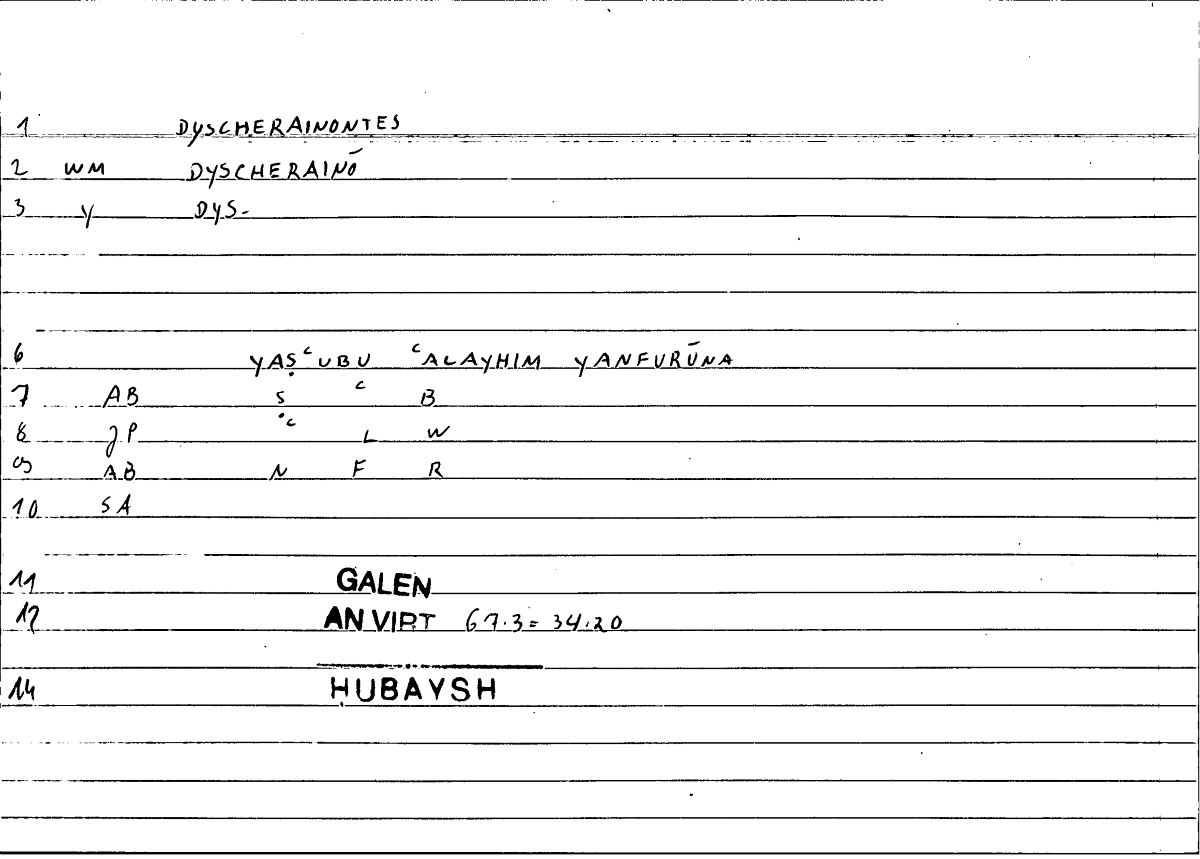 1 DYSCHERAINONTES
2 WM DYSCHERAINŌ
3 Y DYS-
6 YAṢʿUBU ʿALAYHIM YANFURŪNA
7 AB Ṣ ʿ B
8 JP ʿ L W
9 AB N F R
10 SA
11 GALEN
12 AN VIRT 67.3 = 34.20
14 ḤUBAYSH